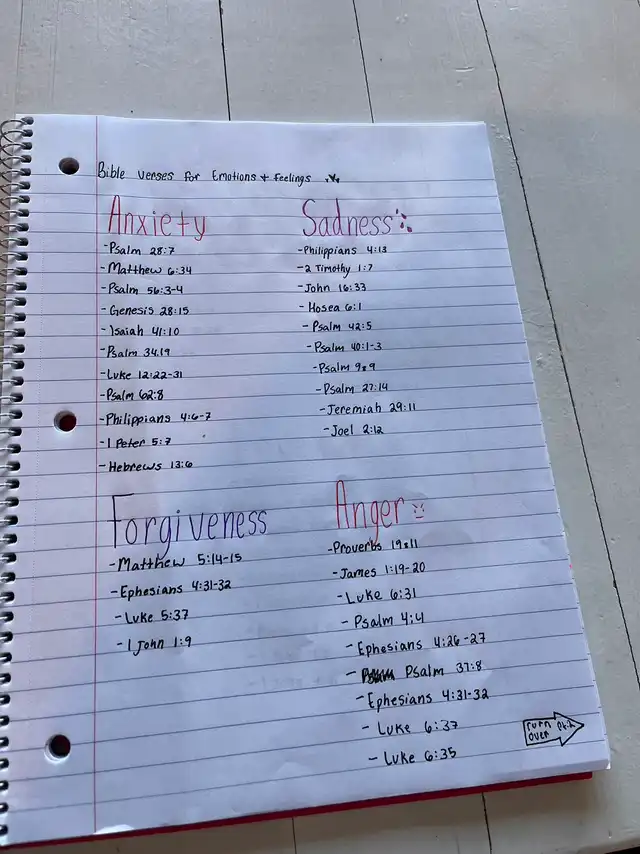 Bible verses for Emotions + Feelings
Anxiety
-Psalm 28:7
-Matthew 6:34
-Psalm 56:3-4
-Genesis 28:15
-Isaiah 41:10
-Psalm 34.19
-Luke 12:22-31
-Psalm 62:8
-Philippians 4:6-7
-1 Peter 5:7
-Hebrews 13:6
Sadness
-Philippians 4:13
-2 Timothy 1:7
-John 16:33
-Hosea 6:1
-Psalm 42:5
-Psalm 40:1-3
-Psalm 9:9
-Psalm 27:14
-Jeremiah 29:11
-Joel 2:12
Forgiveness
-Matthew 5:14-15
-Ephesians 4:31-32
-Luke 5:37
-1 John 1:9
Anger
-Proverbs 19:11
-James 1:19-20
-Luke 6:31
-Psalm 4:4
-Ephesians 4:26-27
-Psalm 37:8
-Ephesians 4:31-32
-Luke 6:37
-Luke 6:35
Turn
over